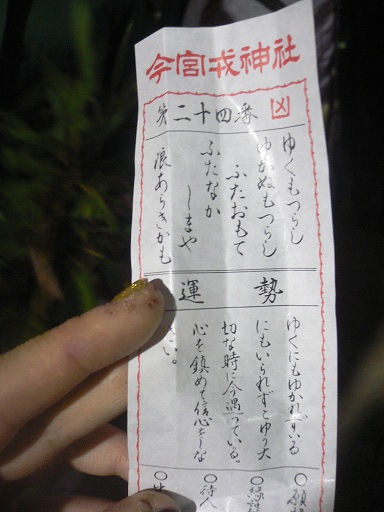 今宮戎神社
第二十四番 凶
ゆくもつらし
ゆかぬもつらし
ふたおもて
ふたなか
しまや
浪あらきかも
運勢
ゆくにもゆかれずいる
にもいられずこゝが大
切な時に今遇っている。
心を鎮めて信心をしな
さい。
○願
○縁
○待人